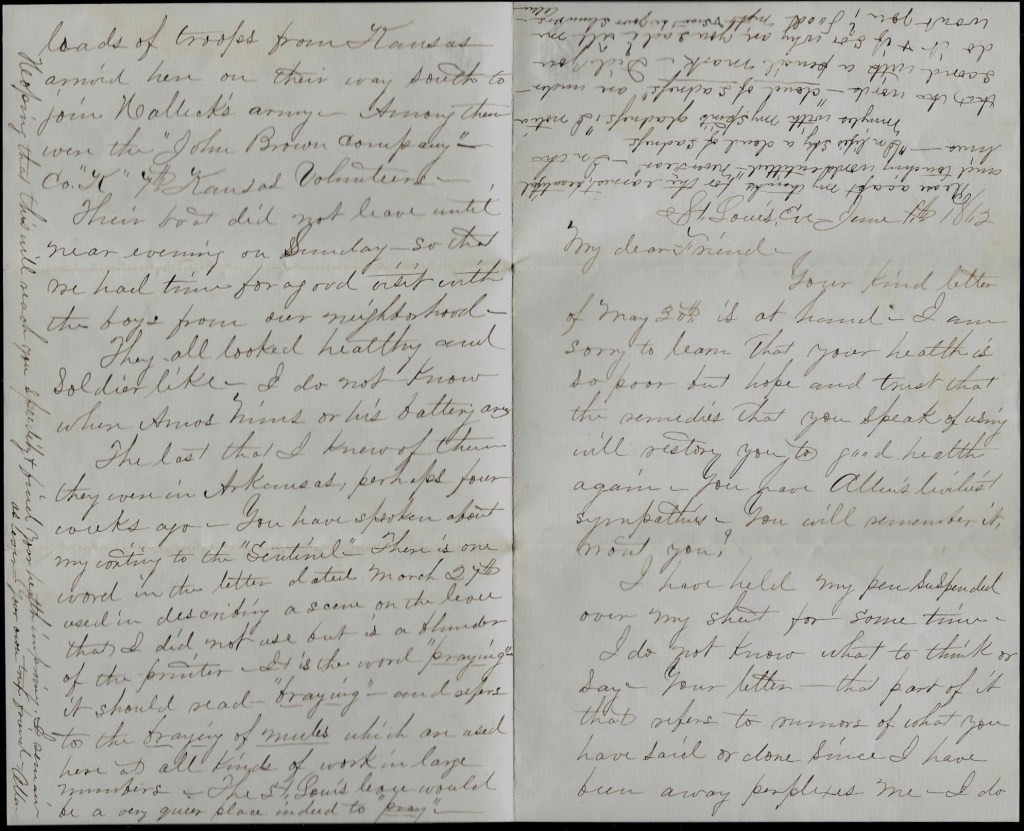 St. Louis, Mo. June 4th 1862
My dear Friend-
Your kind letter
of May 30th is at hand- I am
sorry to learn that your health is
so poor but hope and trust that
the remedies that you speak of using
will restore you to good health
again- You have Allen's liveliest
sympathies- You will remember it,
wont you?
I have held my pen suspended
over my sheet for some time-
I do not know what to think or
say- Your letter- the part of it
that refers to rumors of what you
have said or done since I have
been away perplexes me- I do
Please accept my thanks for the
and touching words entitled "Never Fear"- In the
lines- "In life's sky a cloud of sadness
Mingles with my gladness", I notice
that the words- "cloud of sadness" are under-
scored with a pencil mark- Did you
do it & if so why
wont you? Good night
Allen
loads of troops from Kansas
arrived here on their way south to
join Halleck's army- Among them
were the "John Brown Company"-
Co. "K" 7th Kansas Volunteers-
Their boat did not leave until
near evening on Sunday- so that
we had time for a good visit with
the boys from our neighborhood-
They all looked healthy and
Soldier like- I do not know
where Amos Nims or his battery are
The last that I knew of them
they were in Arkansas, perhaps four
weeks ago- You have spoken about
my writing to the "Sentinel"- There is one
word in the letter dated March 27th
used in describing a scene on the levee
that I did not use but is a blunder
of the printer- It is the word "praying"-
it should read "braying"- and refers
to the braying of mules which are used
here at all kinds of work in large
numbers- The St. Louis levee would
be a very queer place indeed to "pray"-
Hoping that this will reach you speedily & find your health improving, I remain
as ever Your own true friend- Allen